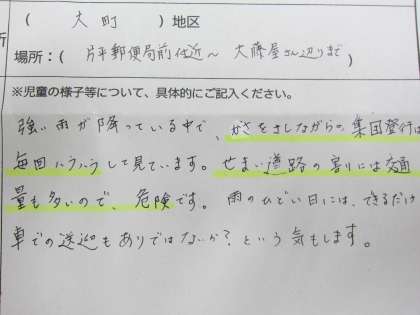 所
( 大町 )地区
場所:( 片平郵便局前付近〜大藤屋さん辺りまで )
※児童の様子等について、具体的にご記入ください。
強い雨が降っている中で、かさをさしながらの集団登校は
毎回ハラハラして見ています。せまい道路の割りには交通
量も多いので、危険です。雨のひどい日には、できるだけ
車での送迎もありではないか?という気もします。